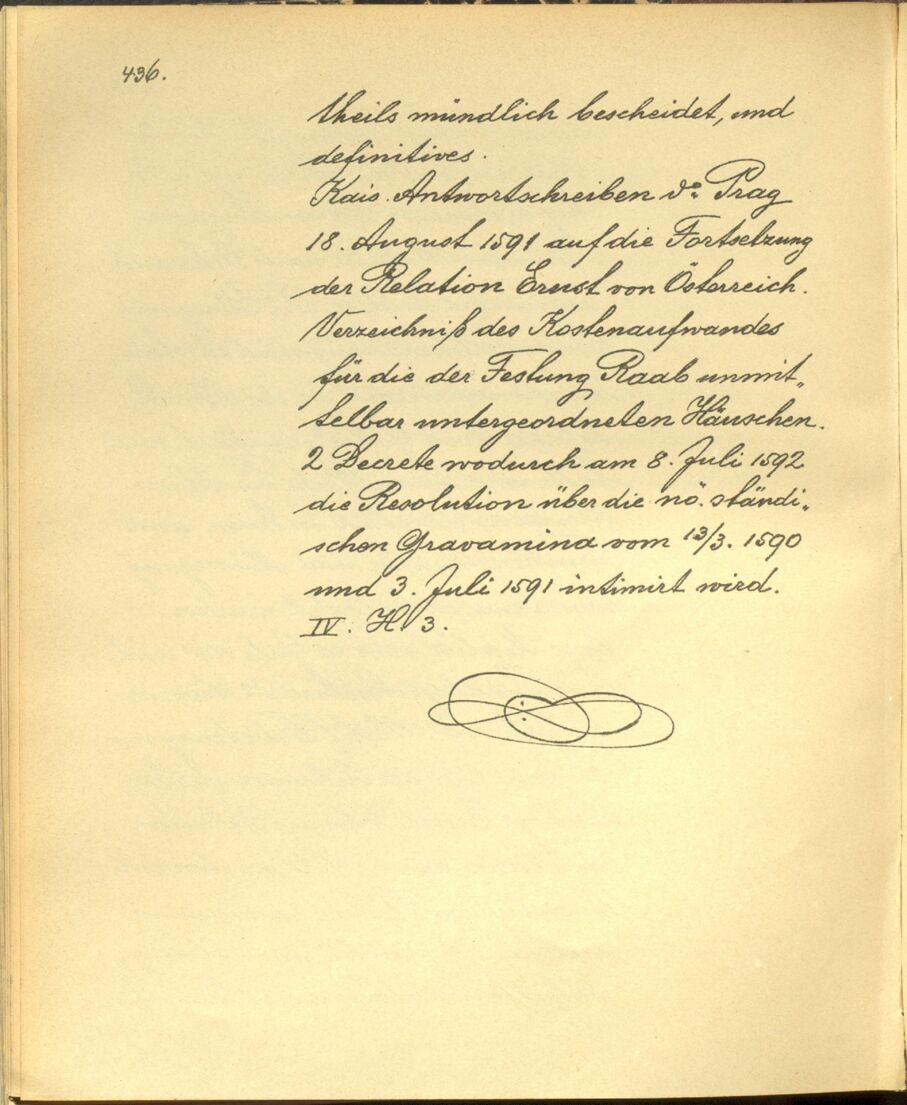 436.
theils mündlich bescheidet, und
definitives.
Kais. Antwortschreiben do: Prag
18. August 1591 auf die Fortsetzung
der Relation Ernst von Österreich.
Verzeichniß des Kostenaufwandes
für die der Festung Raab unmit„
telbar untergeordneten Häuschen.
2 Decrete wodurch am 8. Juli 1592
die Resolution über die nö. ständi„
schen Gravamina vom 13/3. 1590
und 3. Juli 1591 intimirt wird.
IV. H. 3.